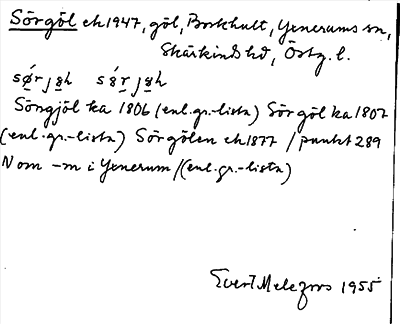 Sörgöl ek 1947, göl, Borkhult, Yxnerums sn,
Skärkinds hd, Östg. l.
sǿrjəh sɵ́rjəh
Sörgjöl ka 1806 (enl. gr.-lista) Sörgöl ka 1807
(enl. gr.-lista) Sörgölen ek 1877 / punkt 289
Nom -m i Yxnerum /(enl. gr.-lista)
Evert Melefors 1955